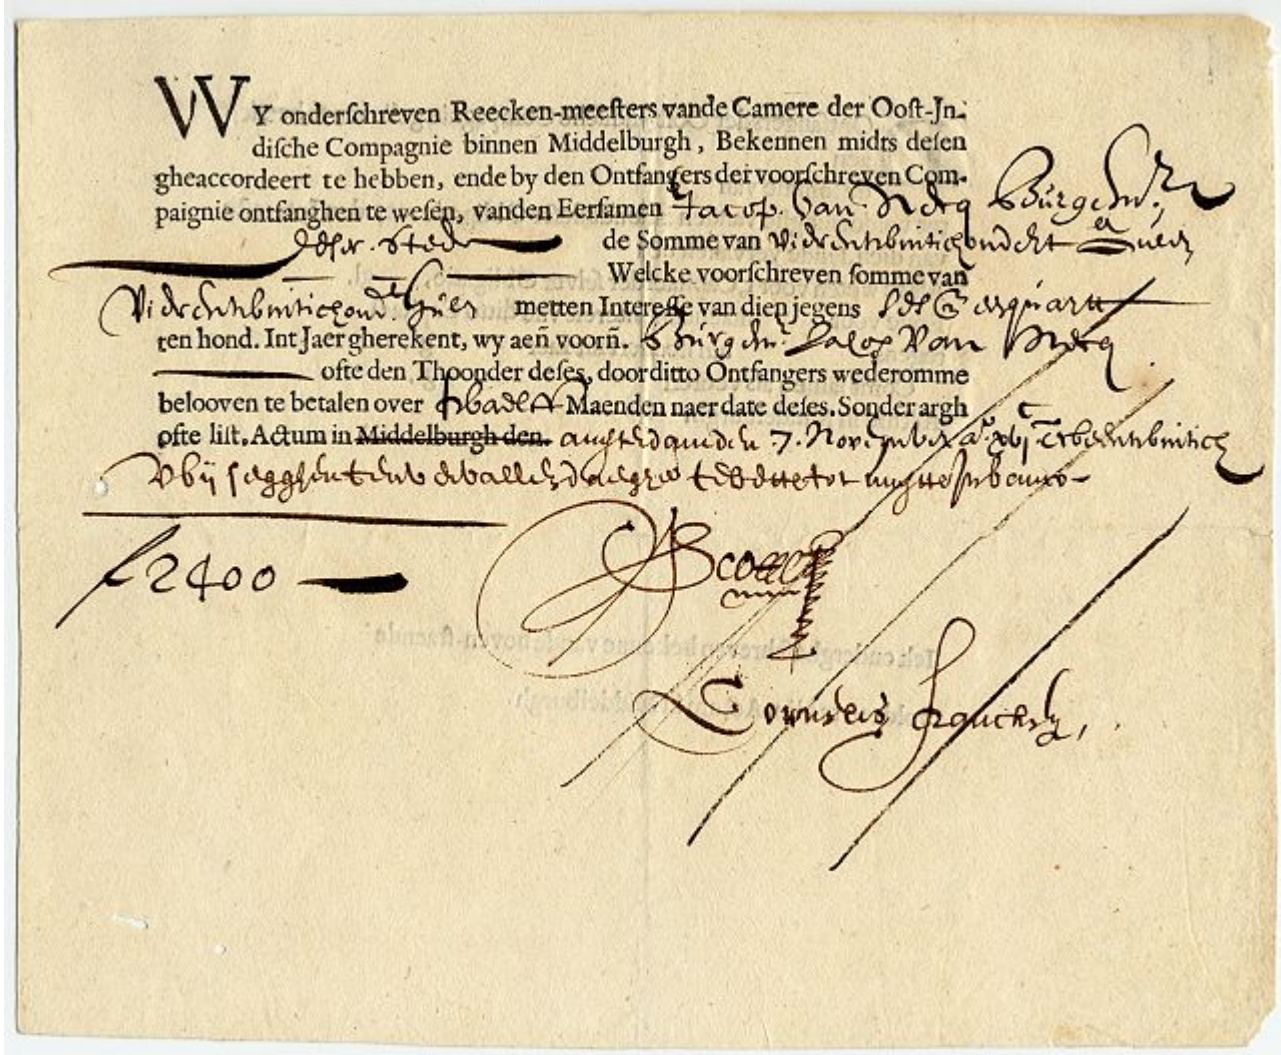 WY onderſchreven Reecken-meeſters vande Camere der Ooſt-Jn-
diſche Compagnie binnen Middelburgh, Bekennen midts deſen
gheaccordeert te hebben, ende by den Ontfangers der voorſchreven Com-
paignie ontfanghen te weſen, vanden Eerſamen Jacop. Van. Neeq Burgemr.
deser. Stede de Somme van vierentwintichondert Guldn
Welcke voorſchreven ſomme van
Vierentwintichond. Gulen metten Intereſſe van dien jegens
ten hond. Int Jaer gherekent, wy aen̄ voorn̄. Burgemr. Jacop Van Neeq
ofte den Thoonder deſes, door ditto Ontfangers wederomme
belooven te betalen over twaelff Maenden naer date deſes. Sonder argh
ofte liſt. Actum in Middelburgh den. 7. November
f 2400
Cornelis